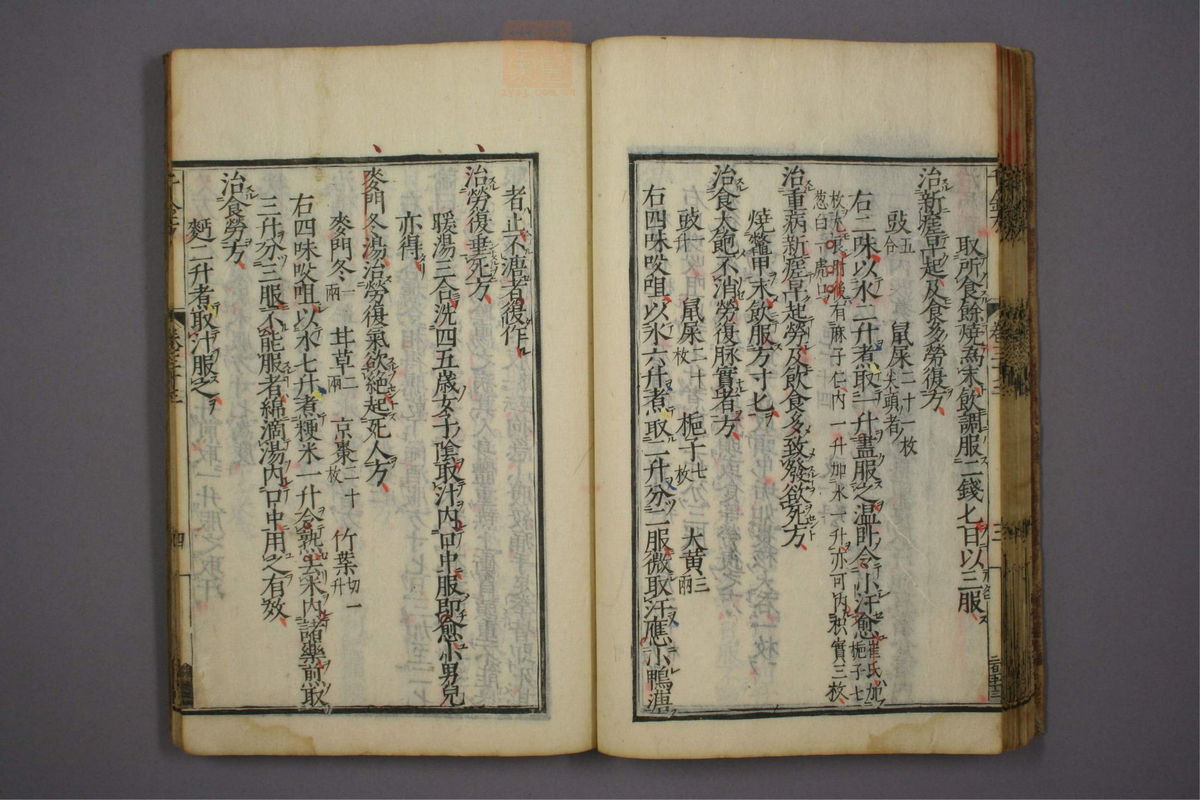 取所食餘燒為末飲調服二錢匕日以三服
治新瘥早起及食多勞復方
豉五合 鼠屎二十一枚尖頭者
右二味以水二升煮取一升盡服之温卧令小汗愈崔氏加梔子七
枚大黃有麻子仁内一升加水一升亦可内枳實三枚
葱白一虎口
治重病新瘥早起勞及飲食多致發欲死方
燒鱉甲末飲服方寸匕
治食大飽不消勞復脉實者方
豉一升 鼠屎二十一枚 梔子七枚 大黄三兩
右四味㕮咀以水六升煮取二升分二服微取汗應小鴨溏
者止不溏者復作
治勞復垂死方
暖湯三合洗四五歲女子陰取汁内口中服即愈小男兒
亦得
麥門冬湯治勞復氣欲絶起死人方
麥門冬一兩 甘草二兩 京棗二十枚 竹葉切一升
右四味㕮咀以水七升煮粳米一升令熟去米内諸藥煎取
三升分三服不能服者綿滴湯内口中用之有效
治食勞方
麪二升煮取汁服之
千金方
卷三十三
三
四